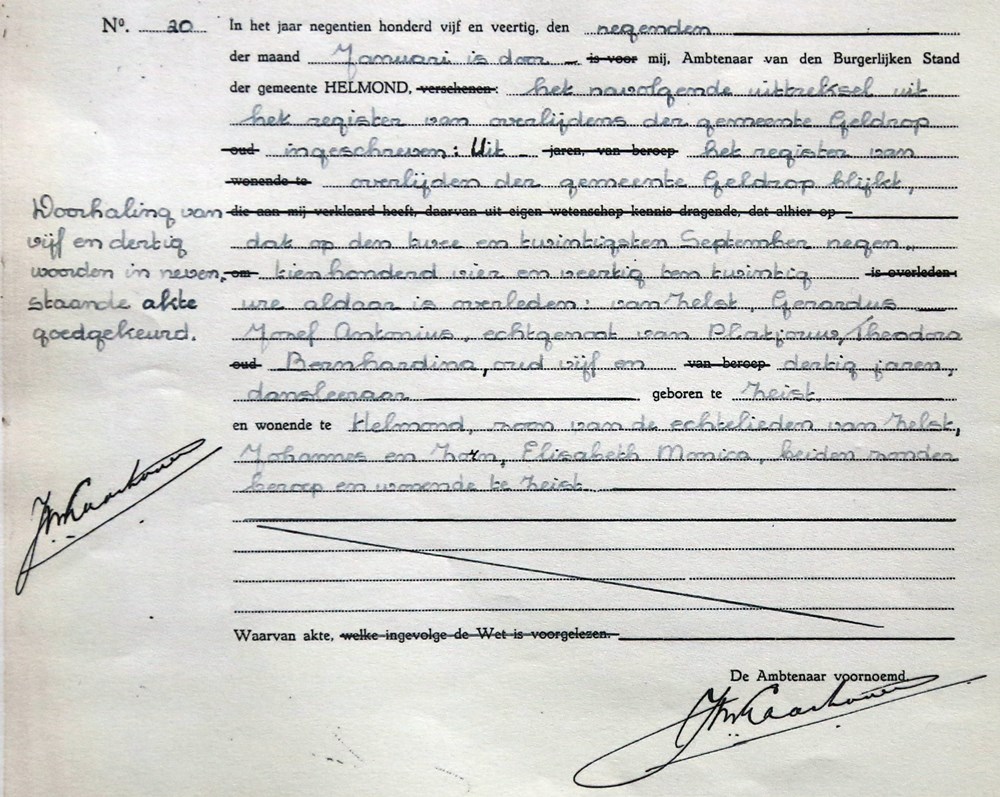 Nº. 20 In het jaar negentien honderd vijf en veertig, den negenden
der maand Januari is door is voor mij, Ambtenaar van den Burgerlijken Stand
der gemeente HELMOND, verschenen: het navolgende uittreksel uit
het register van overlijdens der gemeente Geldrop
oud ingeschreven: Uit jaren, van beroep het register van
wonende te overlijden der gemeente Geldrop blijkt,
die aan mij verklaard heeft, daarvan uit eigen wetenschap kennis dragende, dat alhier op
dat op den twee en twintigsten September negen„
om tienhonderd vier en veertig ten twintig is overleden:
ure aldaar is overleden: van Zelst, Gerardus
Josef Antonius, echtgenoot van Platjouw, Theodora
oud Bernhardina, oud vijf en van beroep dertig jaren,
dansleeraar geboren te Zeist.
en wonende te Helmond, zoon van de echtelieden van Zelst,
Johannes en Horn, Elisabeth Monica, beiden zonder
beroep en wonende te Zeist.
Waarvan akte, welke ingevolge de Wet is voorgelezen.
De Ambtenaar voornoemd,
Doorhaling van
vijf en dertig
woorden in neven„
staande akte
goedgekeurd.